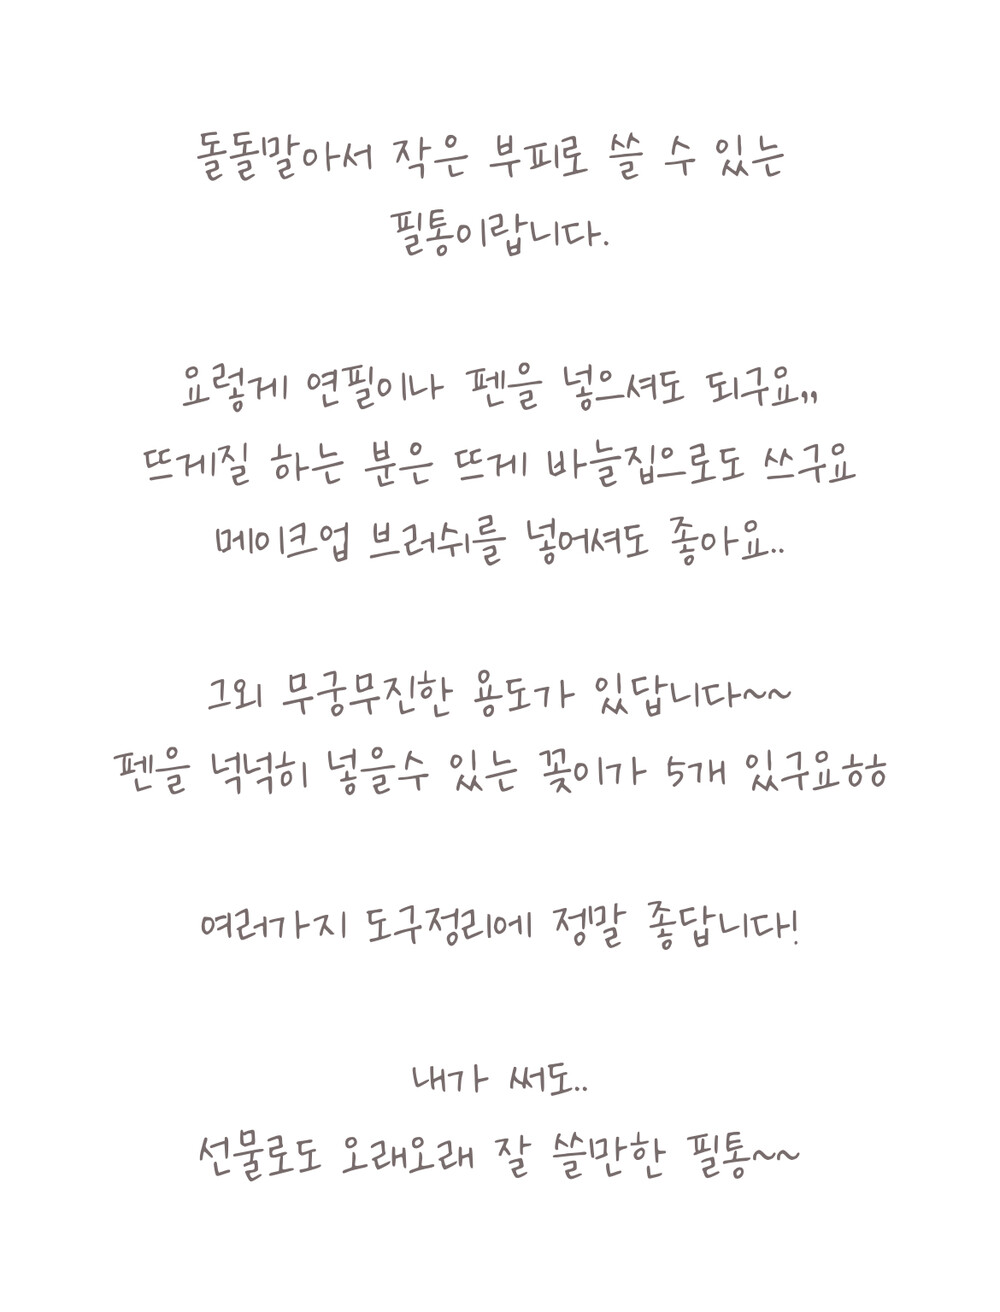 돌돌말아서 작은 부피로 쓸 수 있는
필통이랍니다.
요렇게 연필이나 펜을 넣으셔도 되구요,,
뜨게질 하는 분은 뜨게 바늘집으로도 쓰구요
메이크업 브러쉬를 넣어셔도 좋아요..
그외 무궁무진한 용도가 있답니다~~
펜을 넉넉히 넣을수 있는 꽂이가 5개 있구요ㅎㅎ
여러가지 도구정리에 정말 좋답니다!
내가 써도..
선물로도 오래오래 잘 쓸만한 필통~~